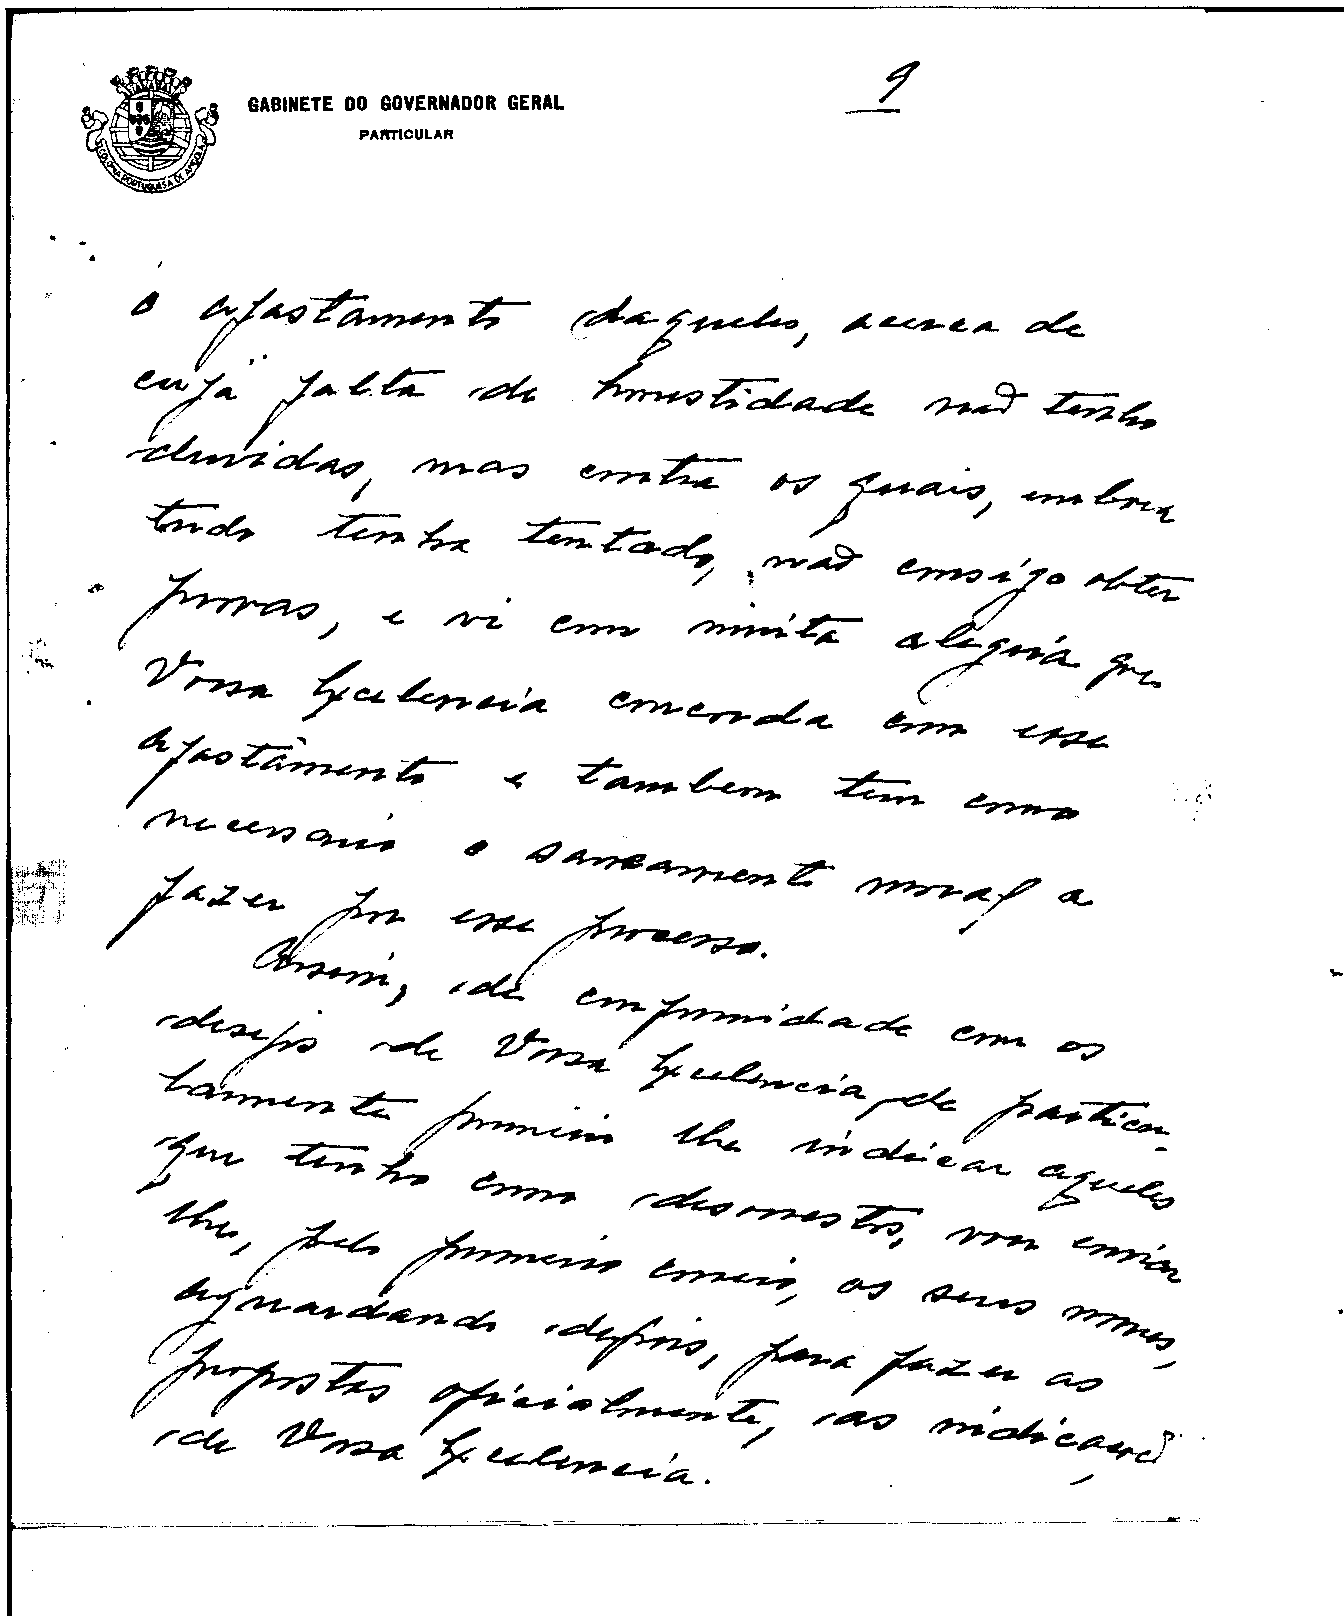 GABINETE DO GOVERNADOR GERAL
PARTICULAR
9
COLONIA PORTUGUESA DE ANGOLA
o afastamento daqueles, acerca de
cuja falta de honestidade não tenho
duvidas, mas contra os quais, embora
tudo tenha tentado, não consigo obter
provas, e vi com muita alegria que
Vossa Excelencia concorda com esse
afastamento e tambem tem como
necessario o saneamento moral a
fazer por esse processo.
Assim, de conformidade com os
desejos de Vossa Excelencia, de particu-
larmente primeiro lhe indicar aqueles
que tenho como desonestos, vou enviar
lhe, pelo primeiro correio, os seus nomes,
aguardando depois, para fazer as
propostas oficialmente, as indicações
de Vossa Excelencia.